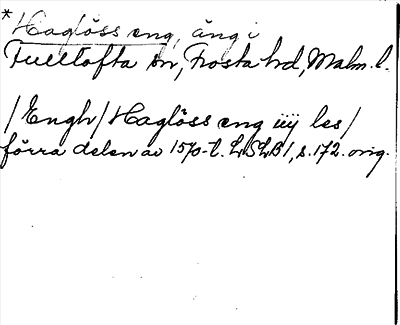 * Haglöss eng, äng i
Fulltofta sn, Frosta hd, Malm. l.
/Engh/ Haglöss eng iiij les/
förra delen av 1570-t. LSLB 1, s. 172. orig.